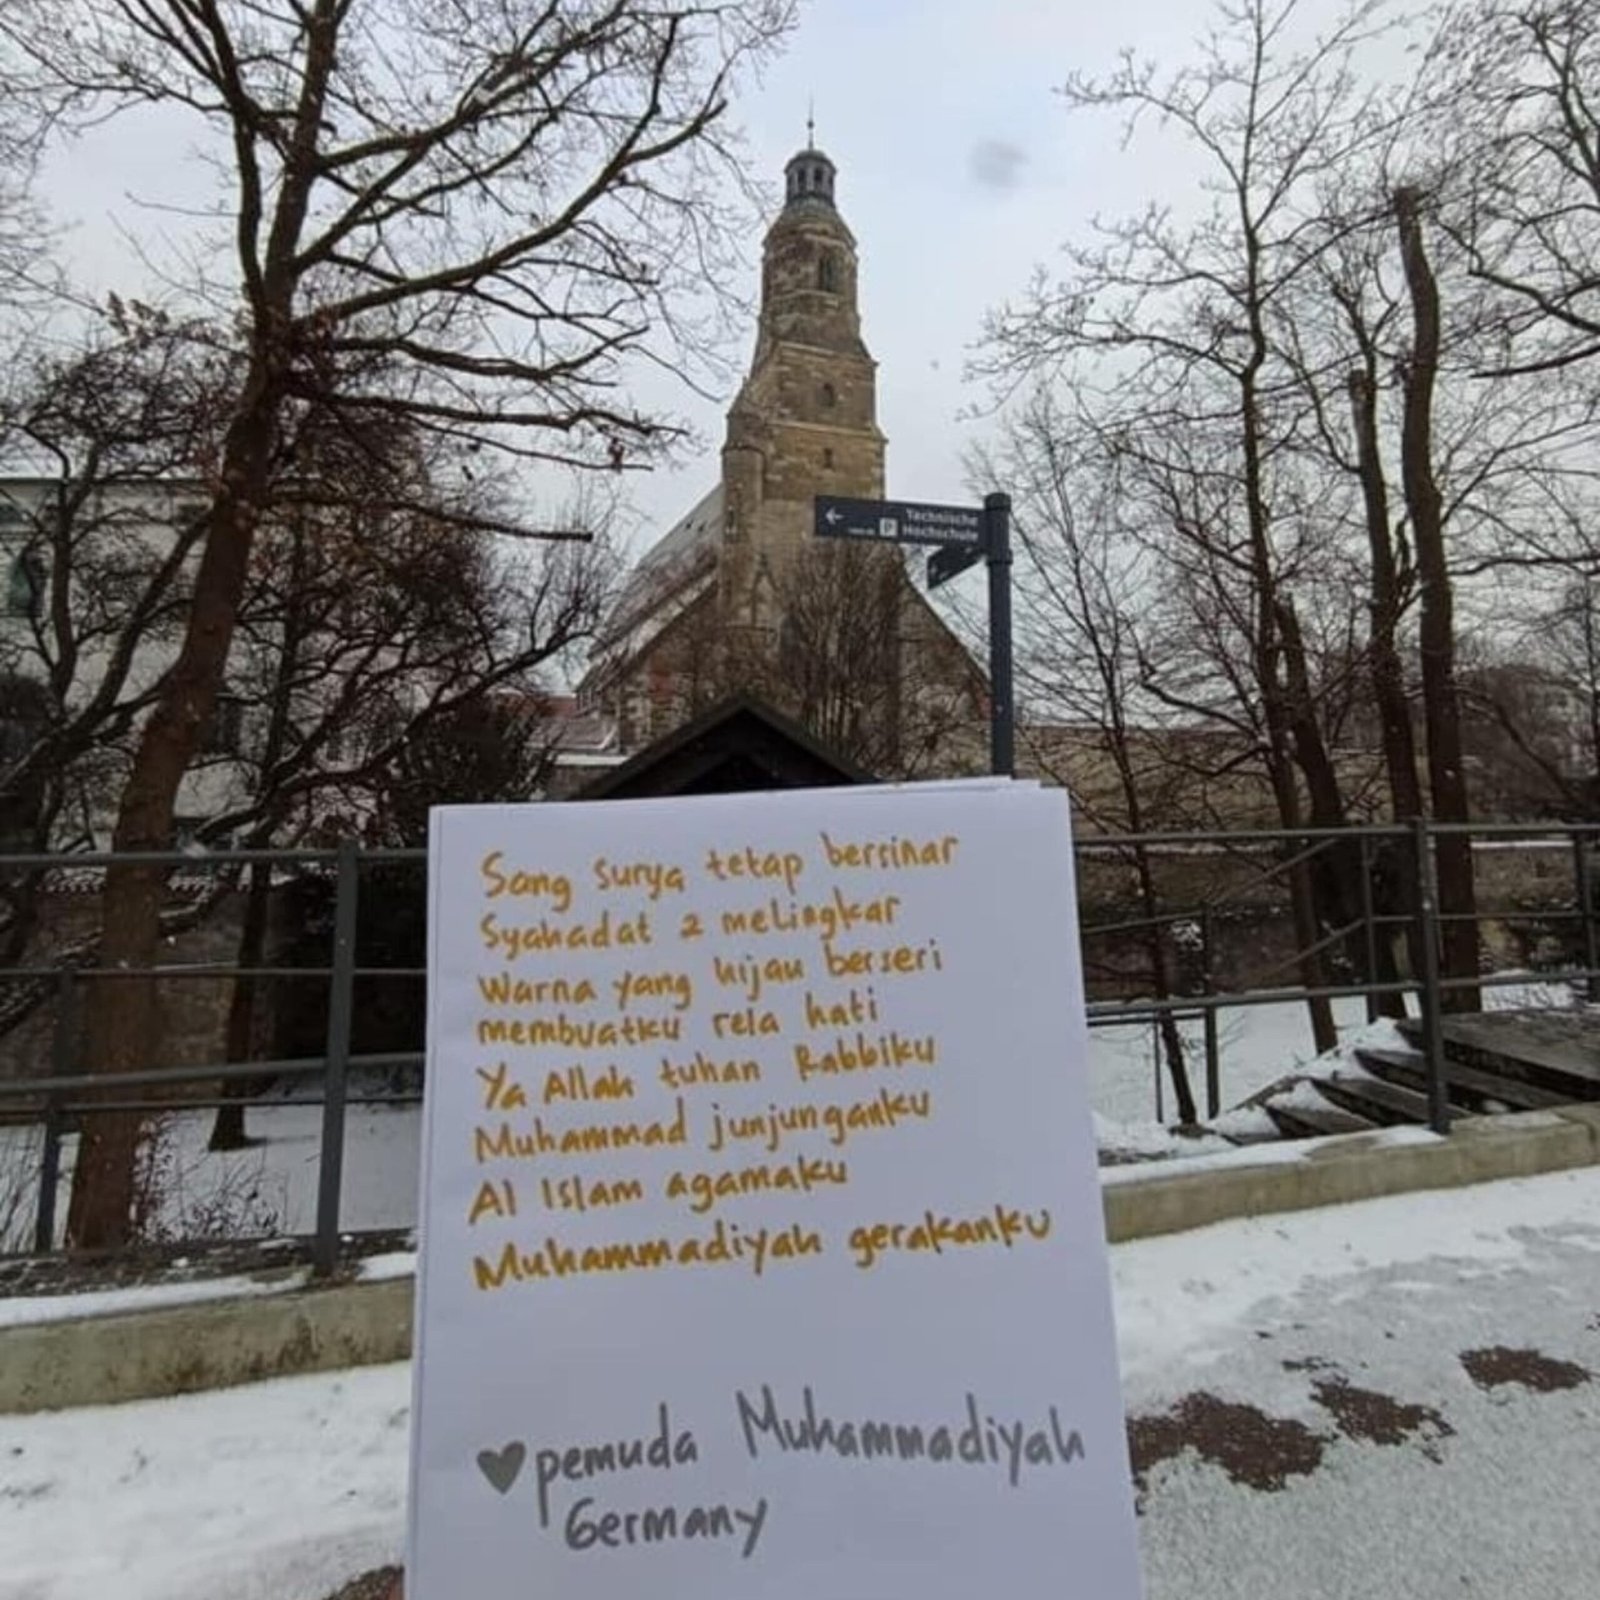 Technische
Hochschule
Sang surya tetap bersinar
Syahadat 2 melingkar
Warna yang hijau berseri
membuatku rela hati
Ya Allah tuhan Rabbiku
Muhammad junjunganku
Al Islam agamaku
Muhammadiyah gerakanku
♥ pemuda Muhammadiyah
Germany